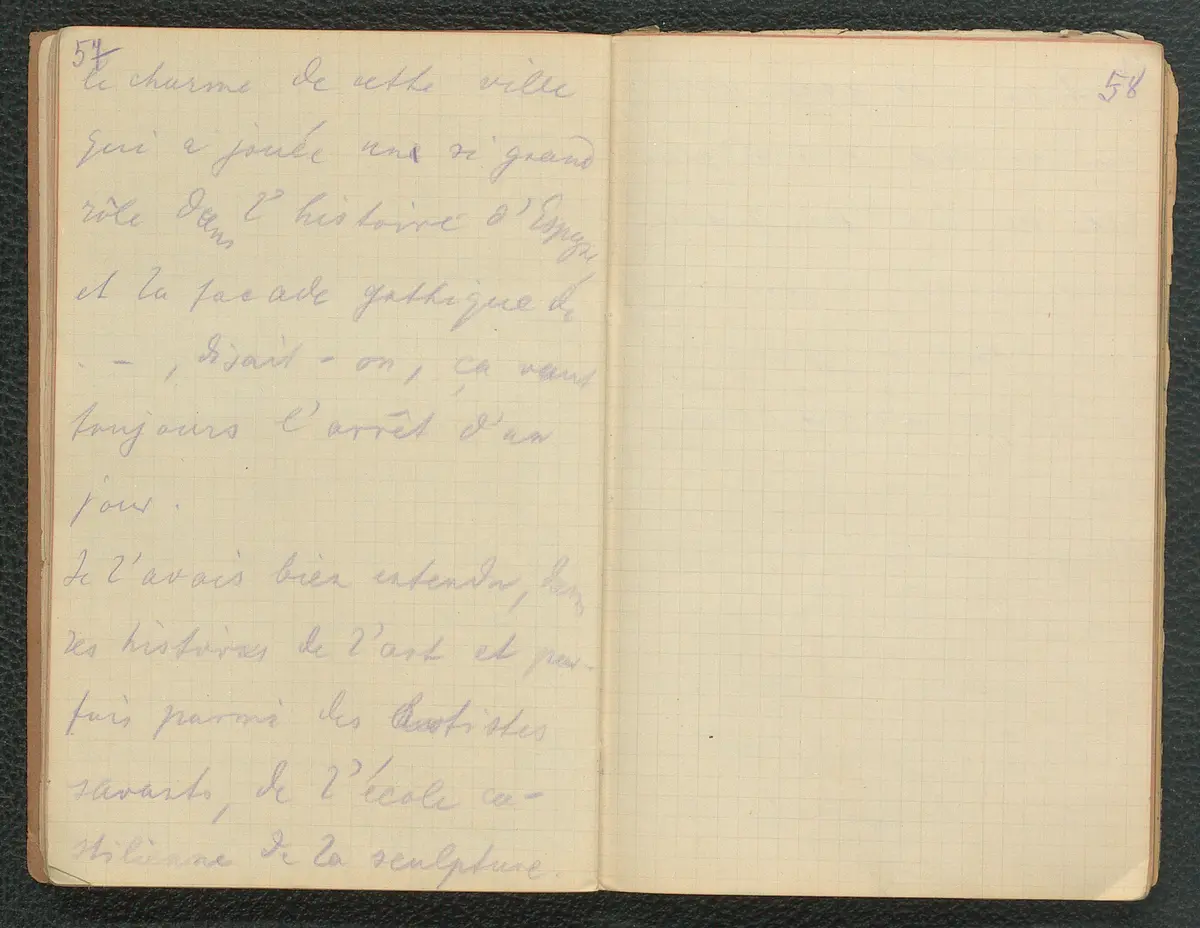 57
le charme de cette ville
qui a jouée une si grand
rôle dans l'histoire d'Espagne
et la façade gothique de
– , disait-on, ça vaut
toujours l'arrêt d'un
jour.
Je l'avais bien entendu, dans
les histoires de l'art et par-
fois parmi des artistes
savants, de l'école ca-
stilienne de la sculpture.
58